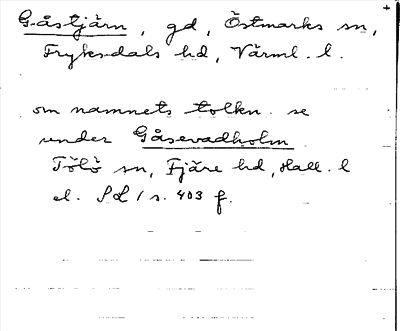 Gåstjärn, gd, Östmarks sn,
Fryksdals hd, Värml. l.
om namnets tolkn. se
under Gåsevadholm
Tölö sn, Fjäre hd, Hall. l
el. SL 1 s. 403 f.